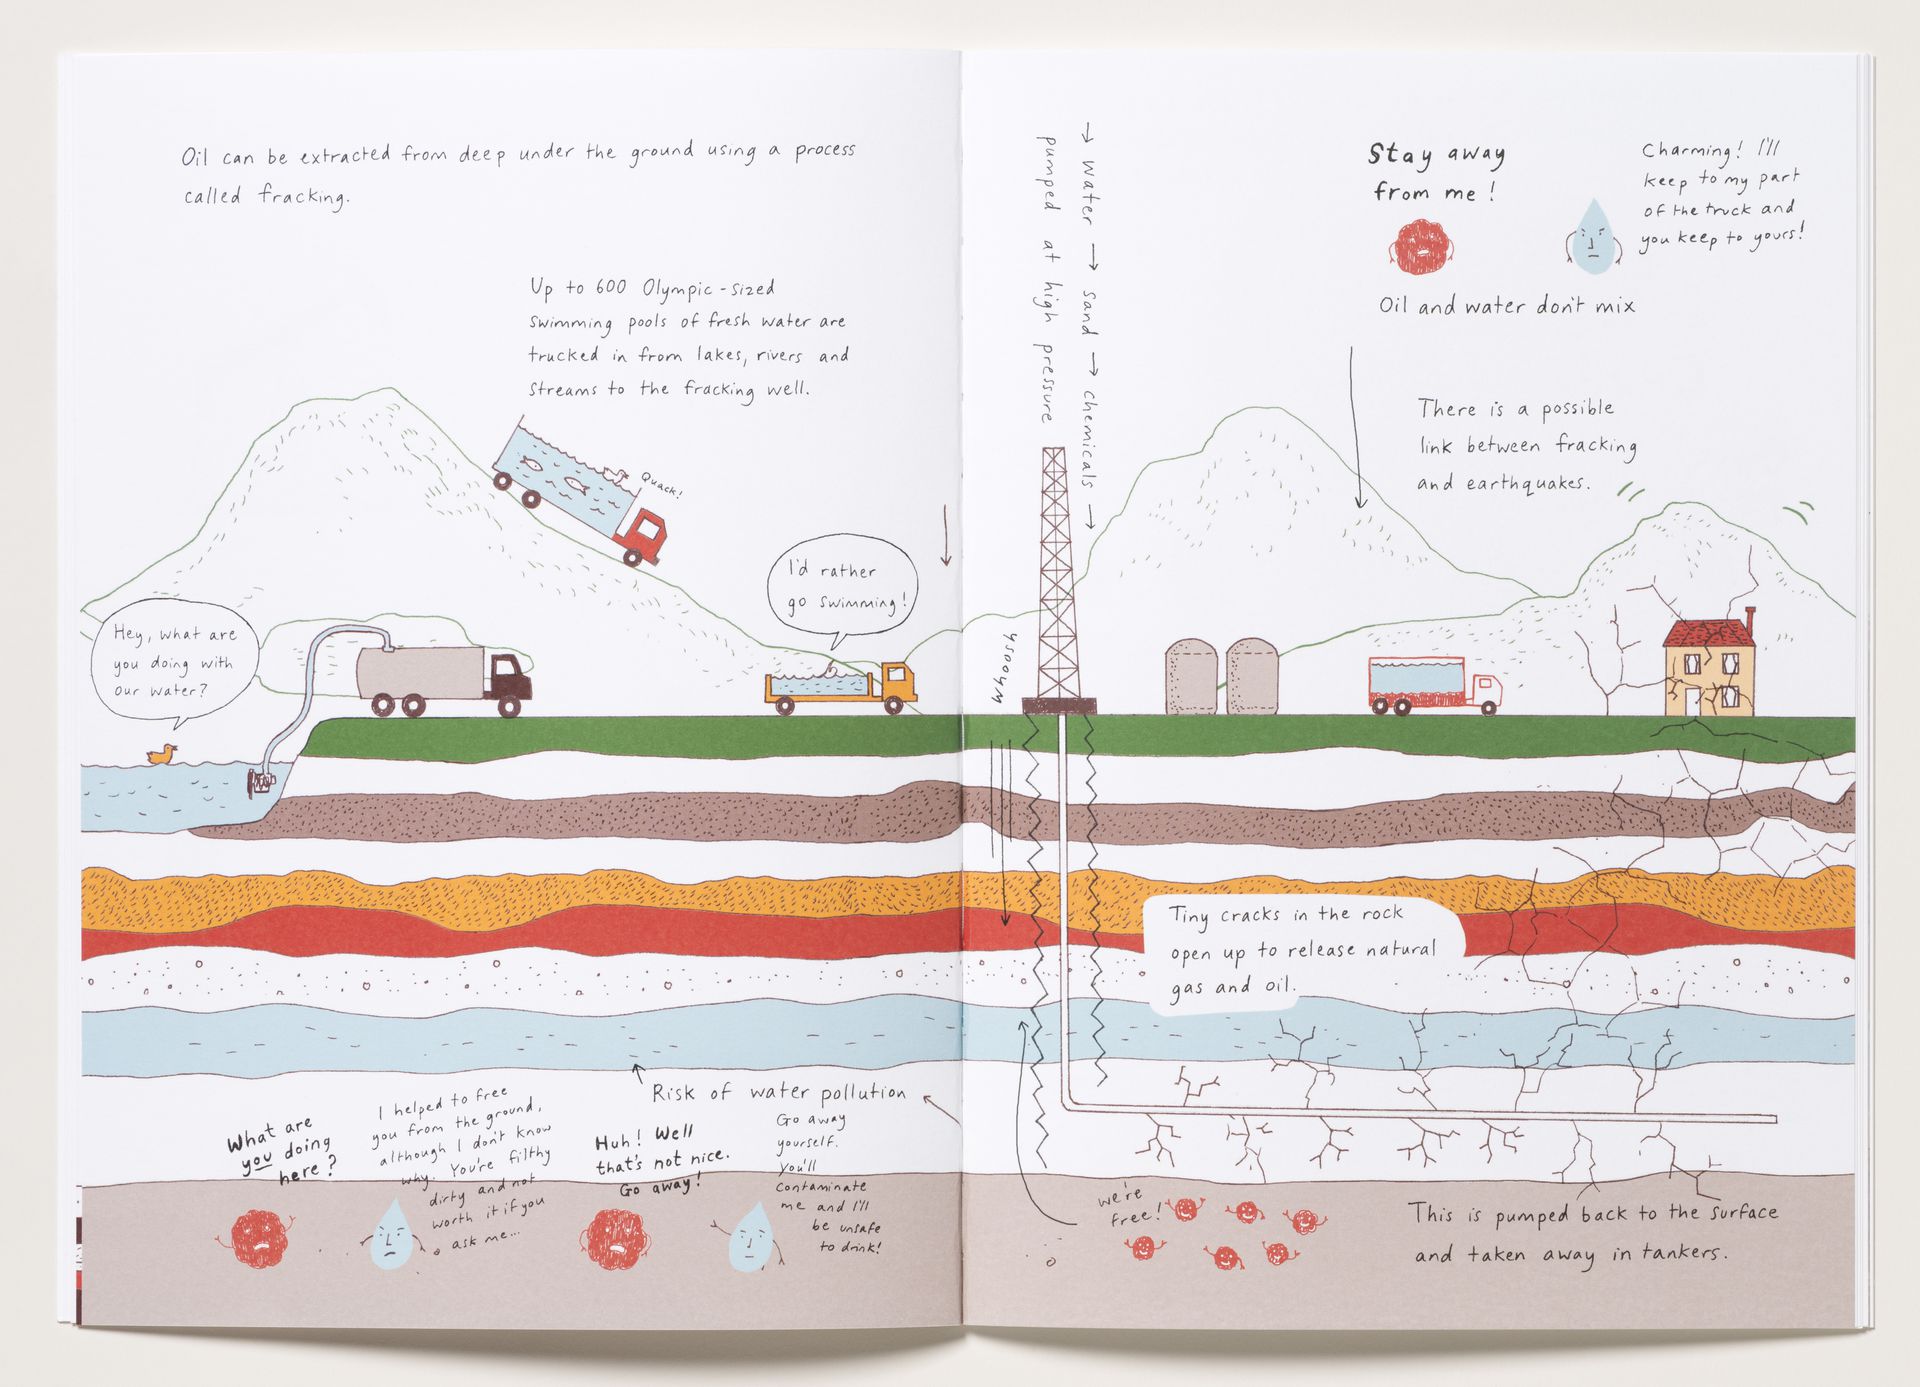 Oil can be extracted from deep under the ground using a process
called fracking.
Up to 600 Olympic-sized
swimming pools of fresh water are
trucked in from lakes, rivers and
streams to the fracking well.
Quack!
I'd rather
go swimming!
Hey, what are
you doing with
our water?
Risk of water pollution
What are
you doing
here?
I helped to free
you from the ground,
although I don't know
why. You're filthy
dirty and not
worth it if you
ask me...
Huh! Well
that's not nice.
Go away!
Go away
yourself.
You'll
contaminate
me and I'll
be unsafe
to drink!
→ water → sand → chemicals →
pumped at high pressure
Whooosh
Stay away
from me!
Charming! I'll
keep to my part
of the truck and
you keep to yours!
Oil and water don't mix
There is a possible
link between fracking
and earthquakes.
Tiny cracks in the rock
open up to release natural
gas and oil.
we're
free!
This is pumped back to the surface
and taken away in tankers.